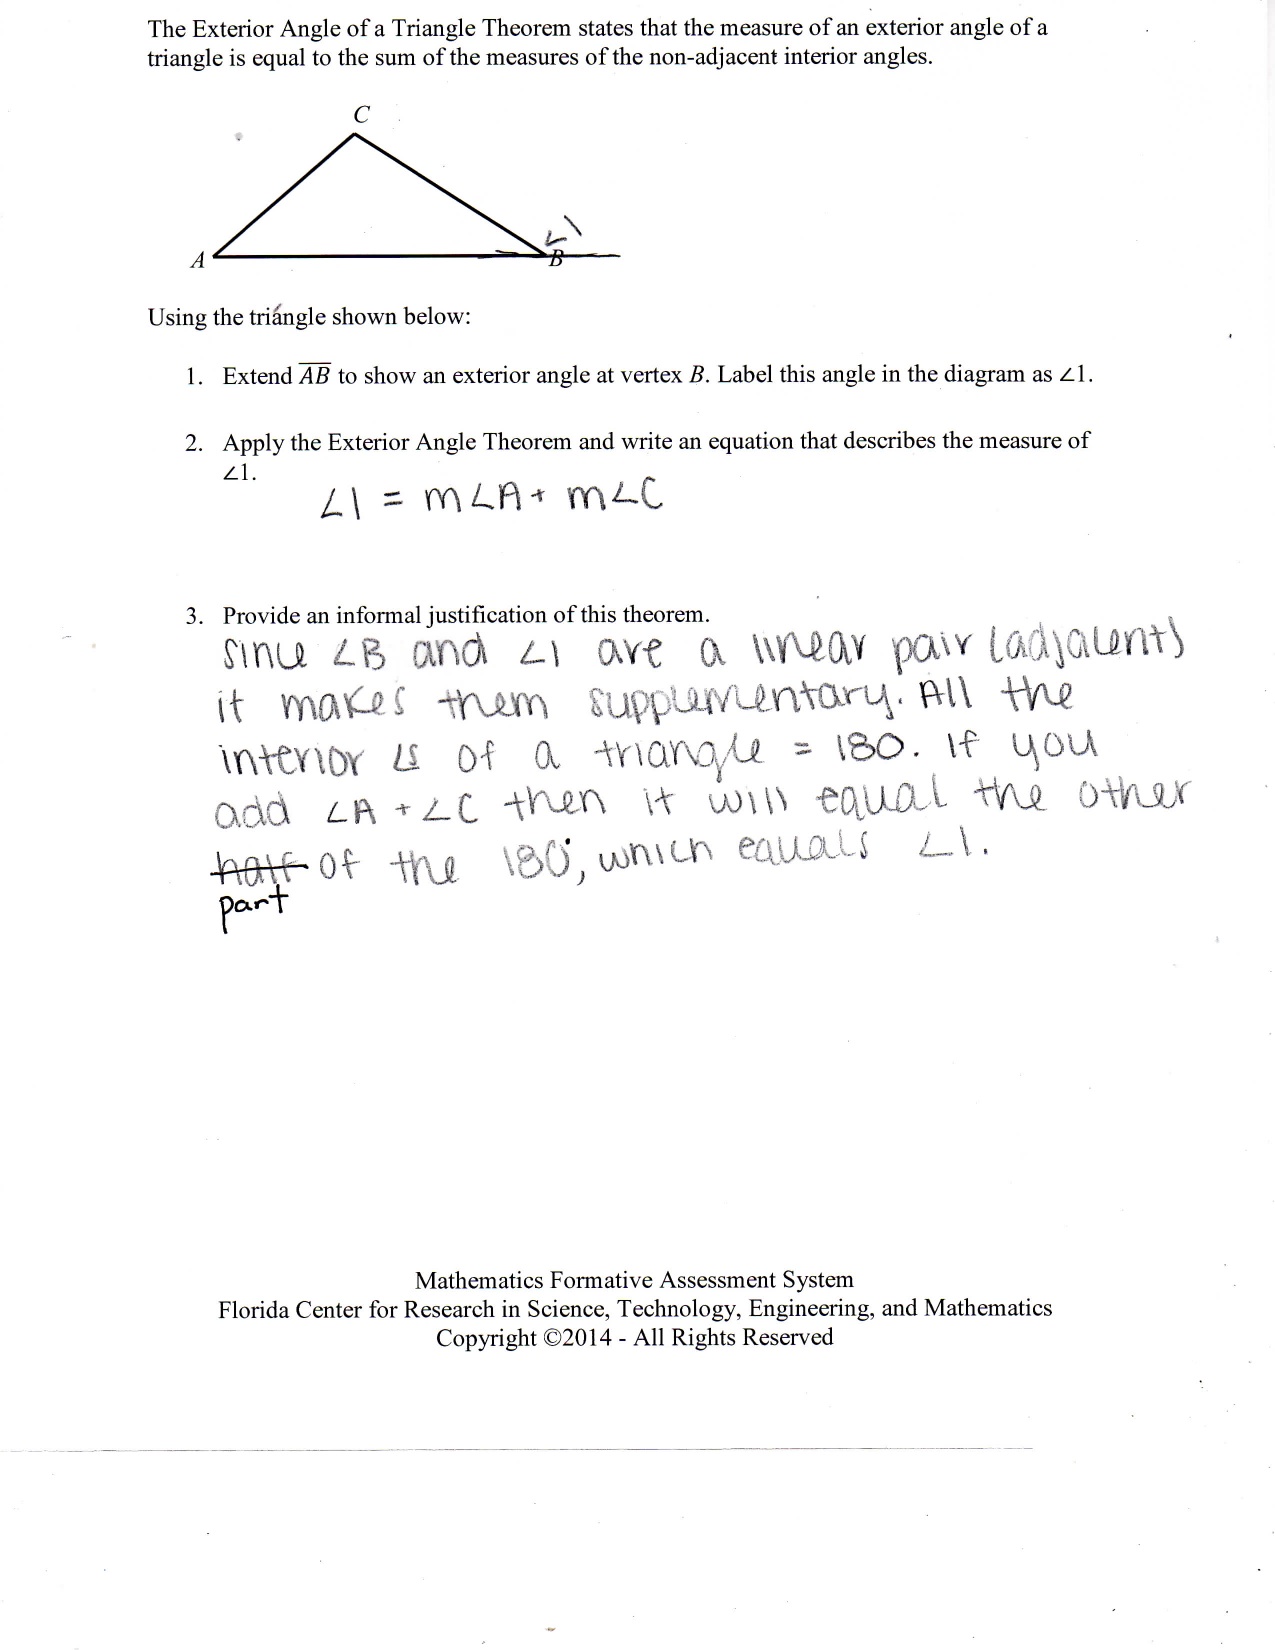 The Exterior Angle of a Triangle Theorem states that the measure of an exterior angle of a
triangle is equal to the sum of the measures of the non-adjacent interior angles.
C
∠1
A
B
Using the triangle shown below:
1. Extend A̅B̅ to show an exterior angle at vertex B. Label this angle in the diagram as ∠1.
2. Apply the Exterior Angle Theorem and write an equation that describes the measure of
∠1.
∠1 = m∠A + m∠C
3. Provide an informal justification of this theorem.
Since ∠B and ∠1 are a linear pair (adjacent)
it makes them supplementary. All the
interior ∠s of a triangle = 180. If you
add ∠A + ∠C then it will equal the other
half of the 180°, which equals ∠1.
part
Mathematics Formative Assessment System
Florida Center for Research in Science, Technology, Engineering, and Mathematics
Copyright ©2014 - All Rights Reserved